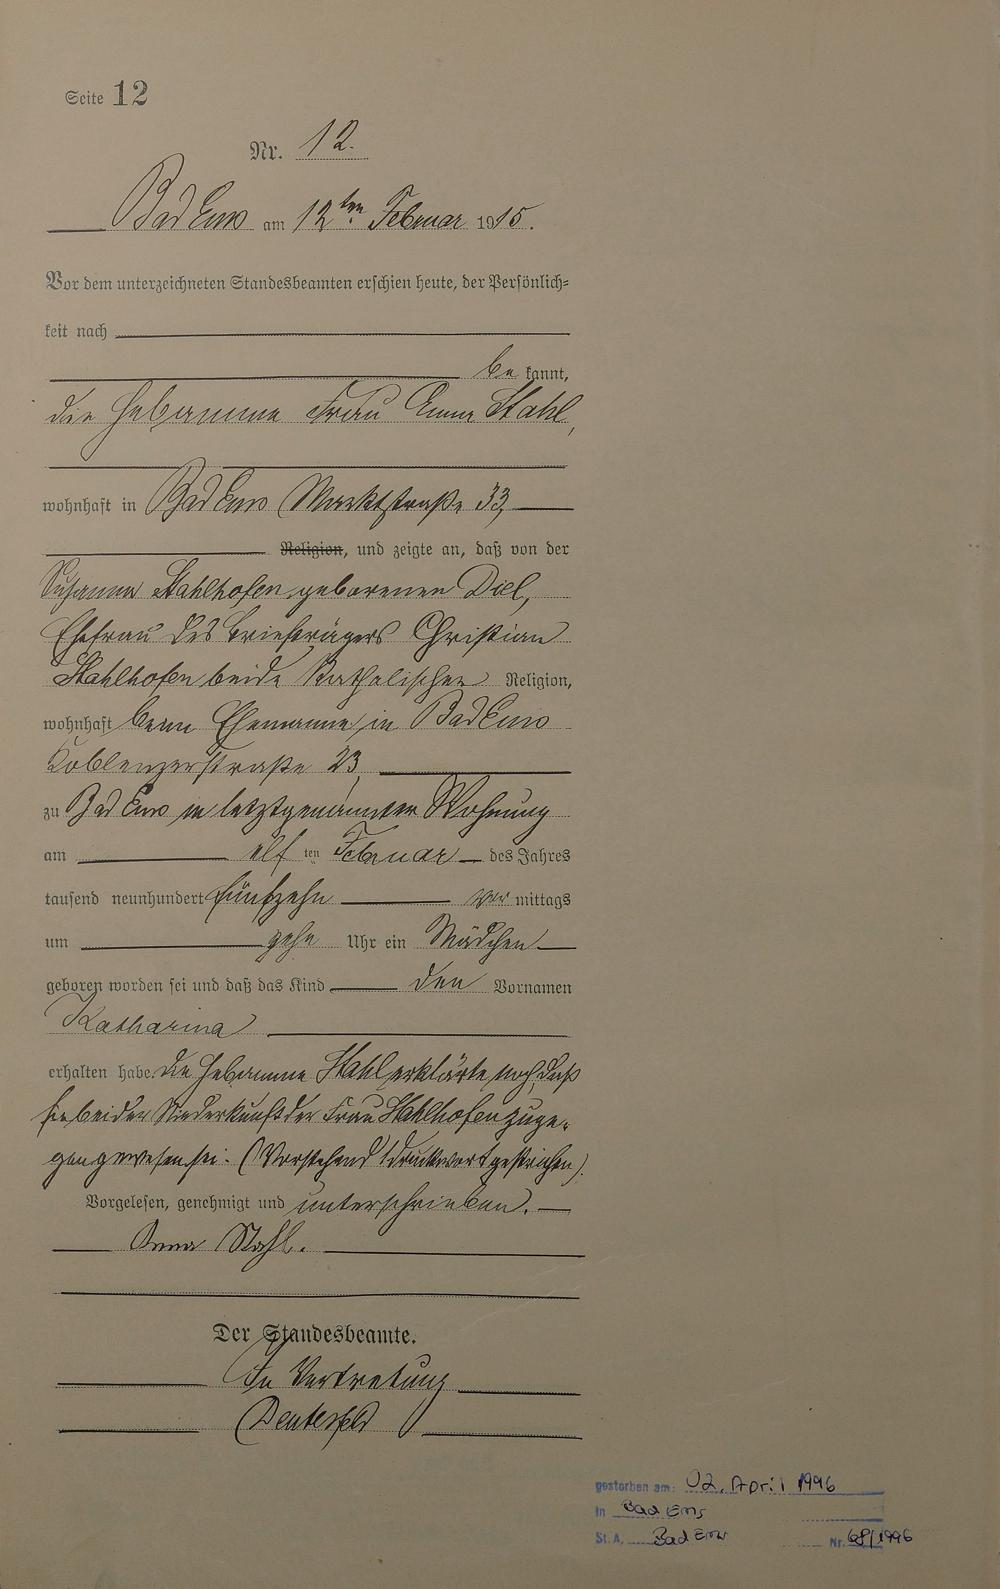 Seite 12
Nr. 12.
Bad Ems am 12ten Februar 1915.
Vor dem unterzeichneten Standesbeamten erschien heute, der Persönlich=
keit nach
be kannt,
die Hebamme Frau Anna Stahl,
wohnhaft in Bad Ems Marktstraße 33,
Religion, und zeigte an, daß von der
Susanna Stahlhofen geborenen Diel,
Ehefrau des Briefträgers Christian
Stahlhofen beide Katholischer Religion,
wohnhaft beim Ehemanne, in Bad Ems
Koblenzerstraße 23,
zu Bad Ems in letztgenannter Wohnung
am elf ten Februar des Jahres
tausend neunhundert fünfzehn vor mittags
um zehn Uhr ein Mädchen
geboren worden sei und daß das Kind den Vornamen
Katharina
erhalten habe. Die Hebamme Stahl erklärte noch, daß
sie bei der Niederkunft der Frau Stahlhofen zuge=
gen gewesen sei. (Vorstehend 1 Druckwort gestrichen).
Vorgelesen, genehmigt und unterschrieben.
Anna Stahl.
Der Standesbeamte.
In Vertretung
gestorben am: 02. April 1996
in Bad Ems
St. A. Bad Ems Nr. 68/1996